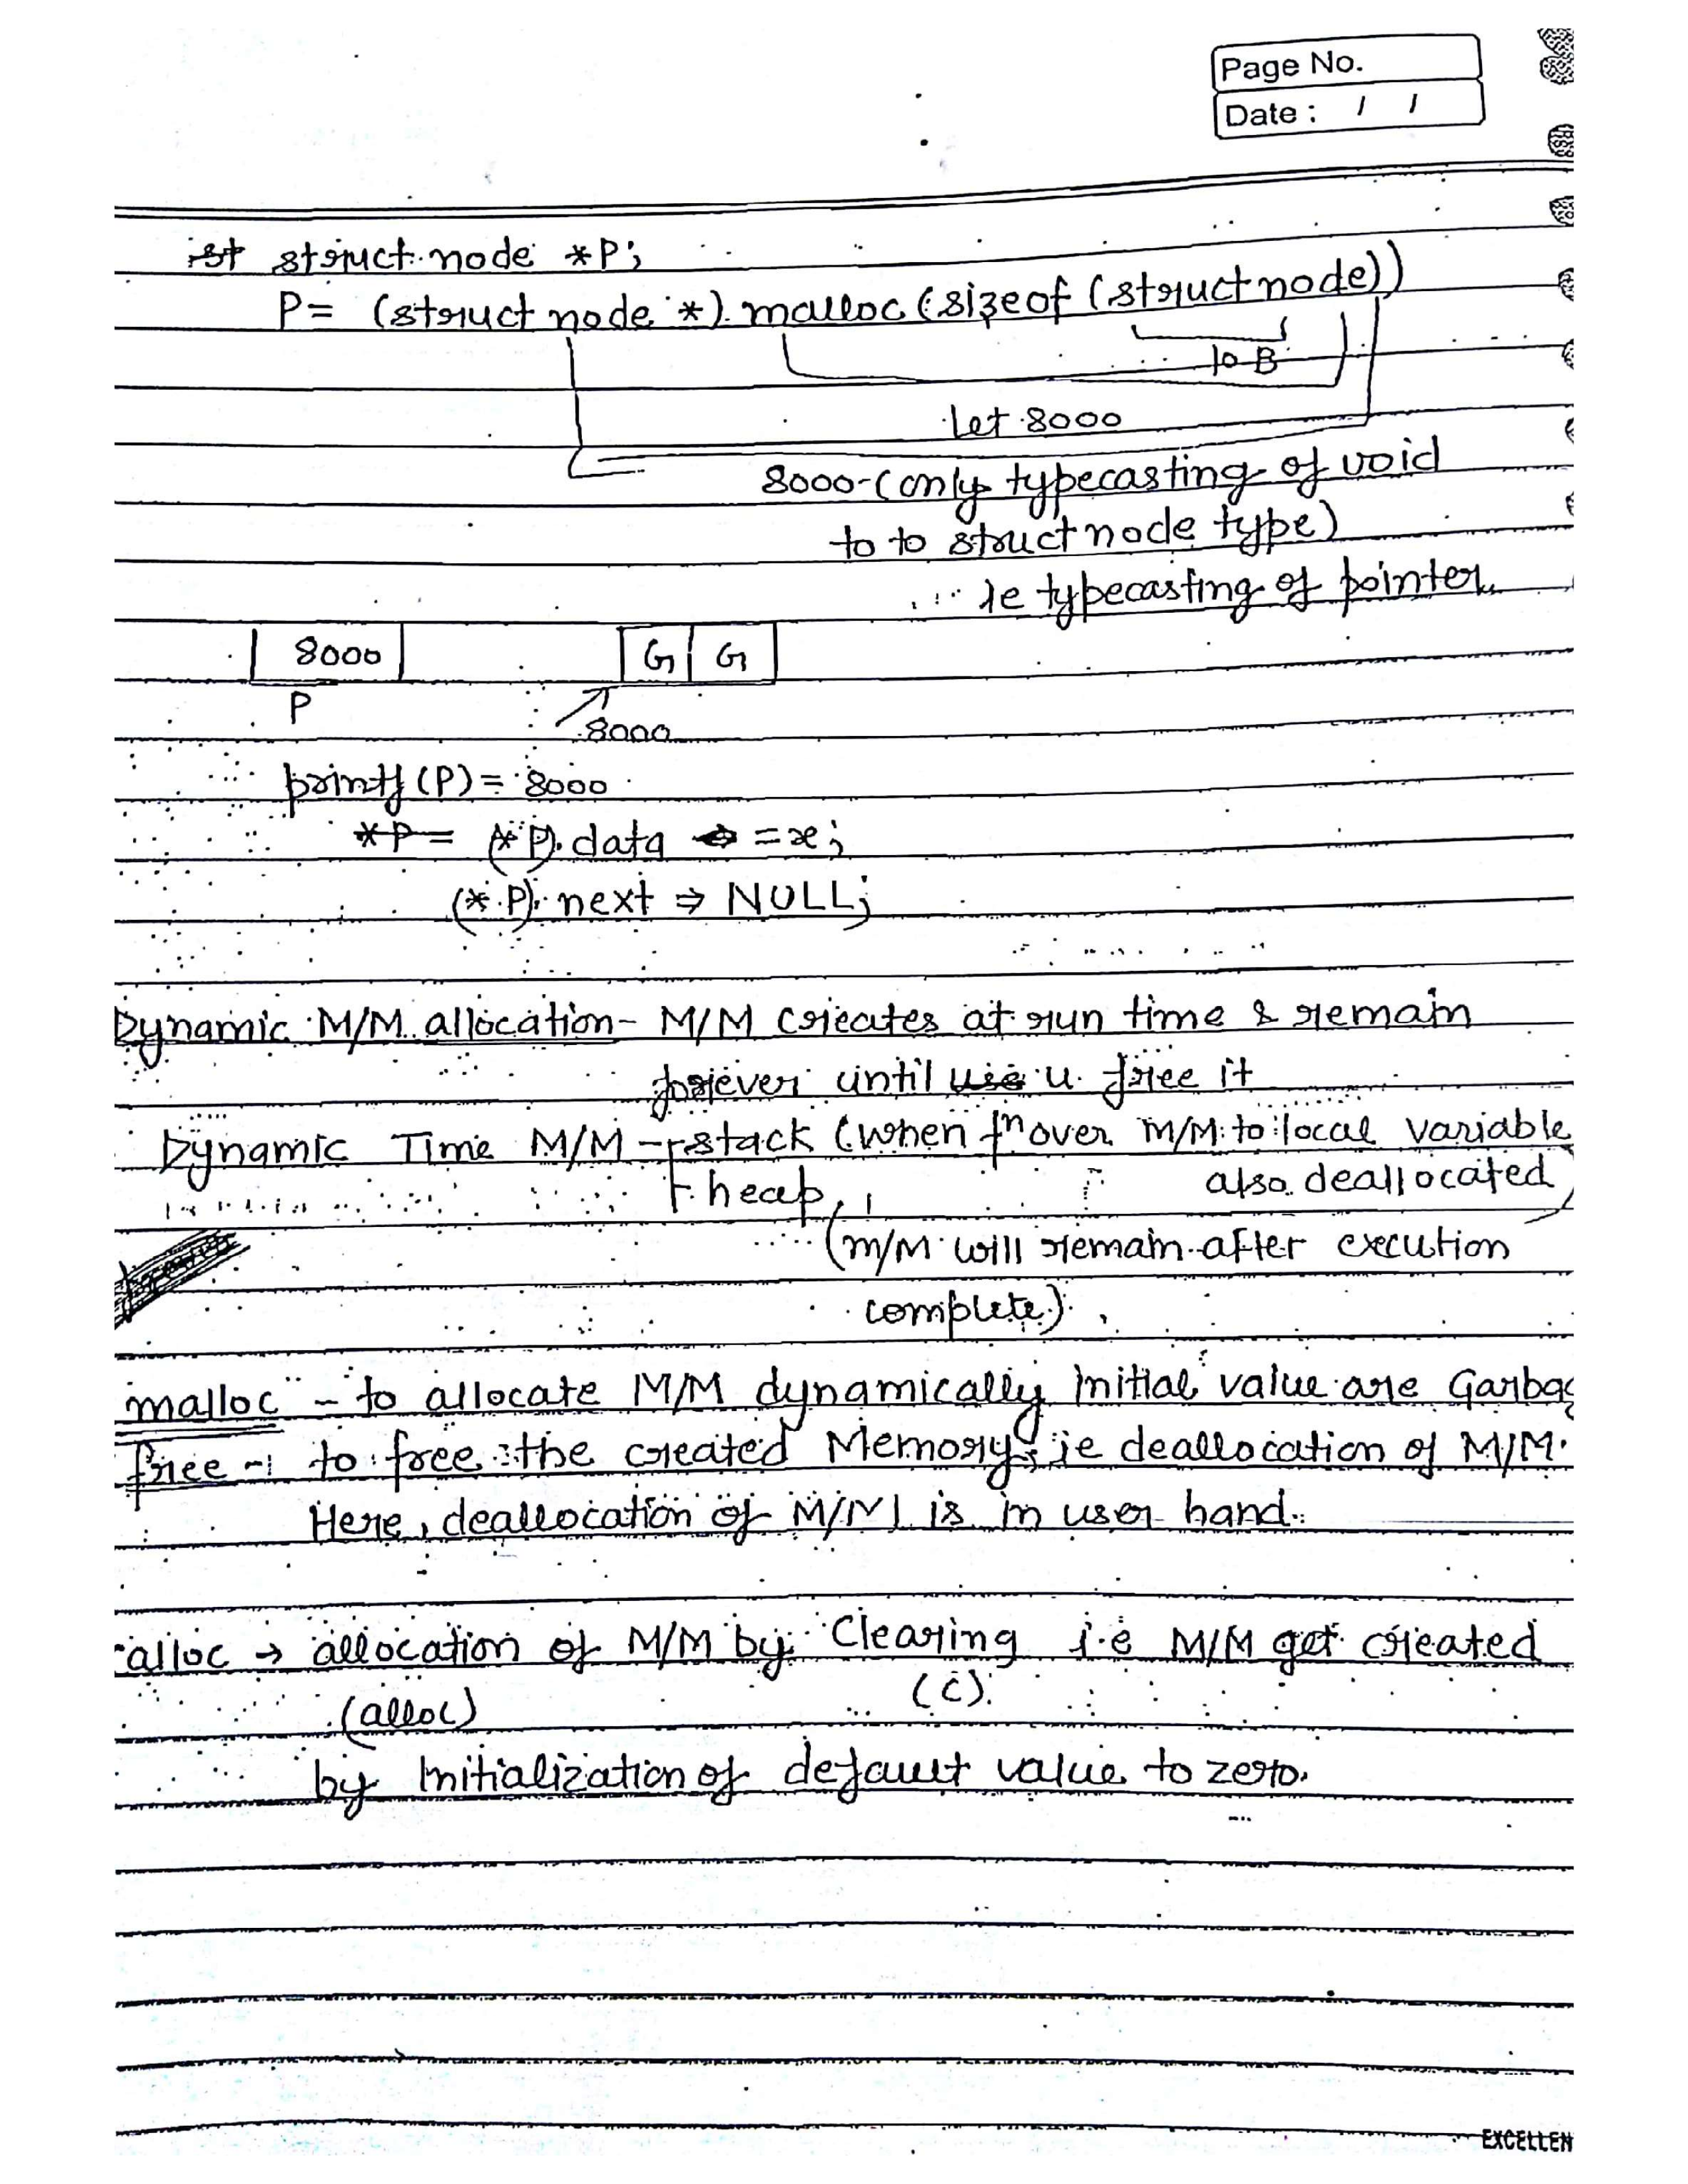 Page No.
Date : / /
ist struct node *P;
P= (struct node *) malloc (sizeof (struct node))
10 B
Let 8000
8000-(only typecasting of void
to to struct node type)
ie typecasting of pointer.
8000 G G
P 8000
printf (P) = 8000
*P = (*P). data = x;
(*P). next ⇒ NULL;
Dynamic M/M allocation - M/M creates at run time & remain
forever until use u free it
Dynamic Time M/M - stack (when fn over M/M to local variable
heap, also deallocated)
(M/M will remain after execution
complete).
malloc - to allocate M/M dynamically initial value are Garbag
free - to free the created Memory, ie deallocation of M/M.
Here, deallocation of M/M is in user hand.
alloc → allocation of M/M by Clearing i.e M/M get created
(alloc) (C).
by initialization of default value to zero.
EXCELLEN